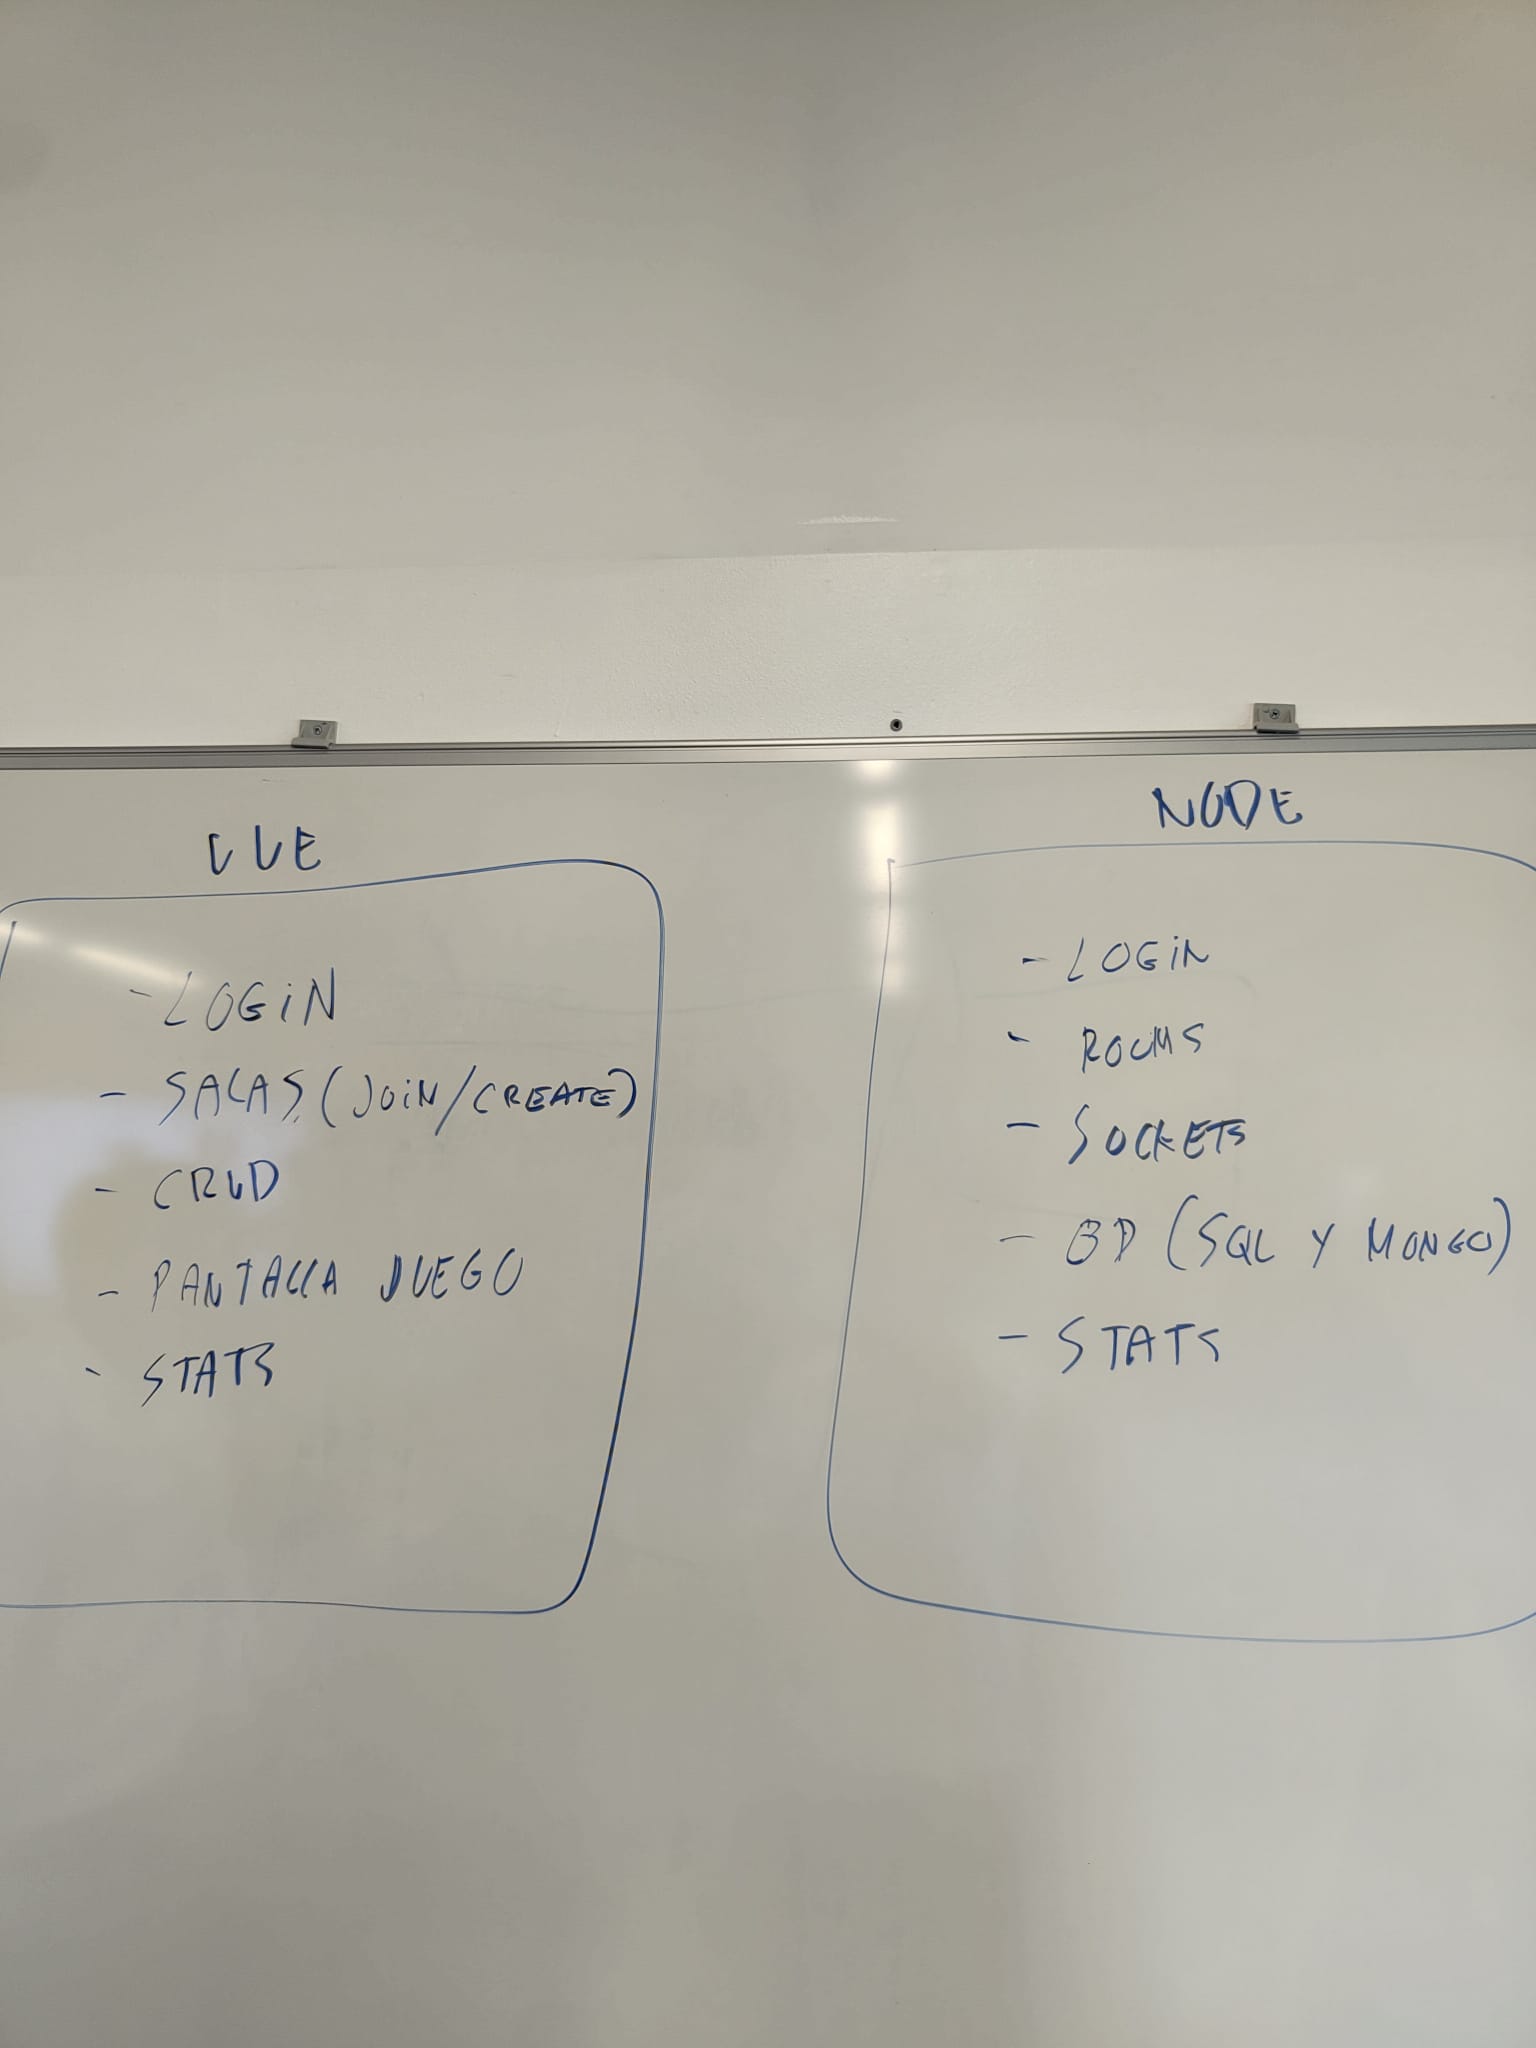 VUE
- LOGIN
- SALAS (JOIN/CREATE)
- CRUD
- PANTALLA JUEGO
- STATS
NODE
- LOGIN
- ROOMS
- SOCKETS
- BD (SQL Y MONGO)
- STATS